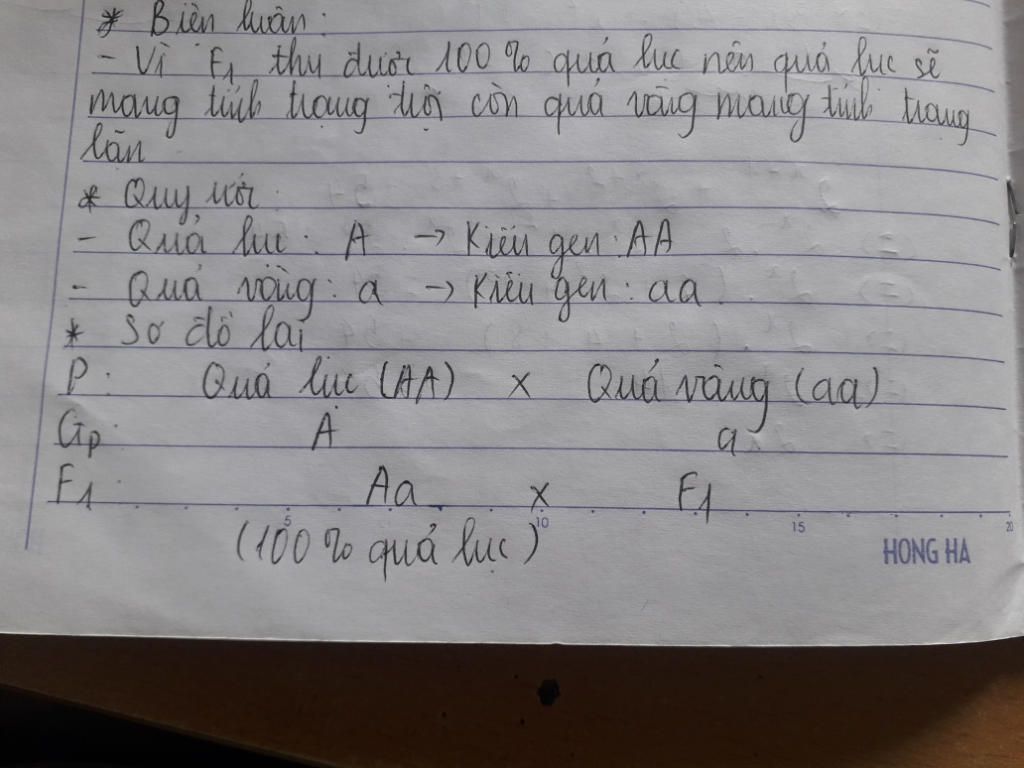 * Biện luận:
- Vì F1 thu được 100% quả lục nên quả lục sẽ
mang tính trạng trội còn quả vàng mang tính trạng
lặn
* Quy ước
- Quả lục: A → Kiểu gen: AA
- Quả vàng: a → Kiểu gen: aa
* Sơ đồ lai
P: Quả lục (AA) x Quả vàng (aa)
Gp: A a
F1: Aa x F1
5 10 15 20
(100% quả lục)
HONG HA